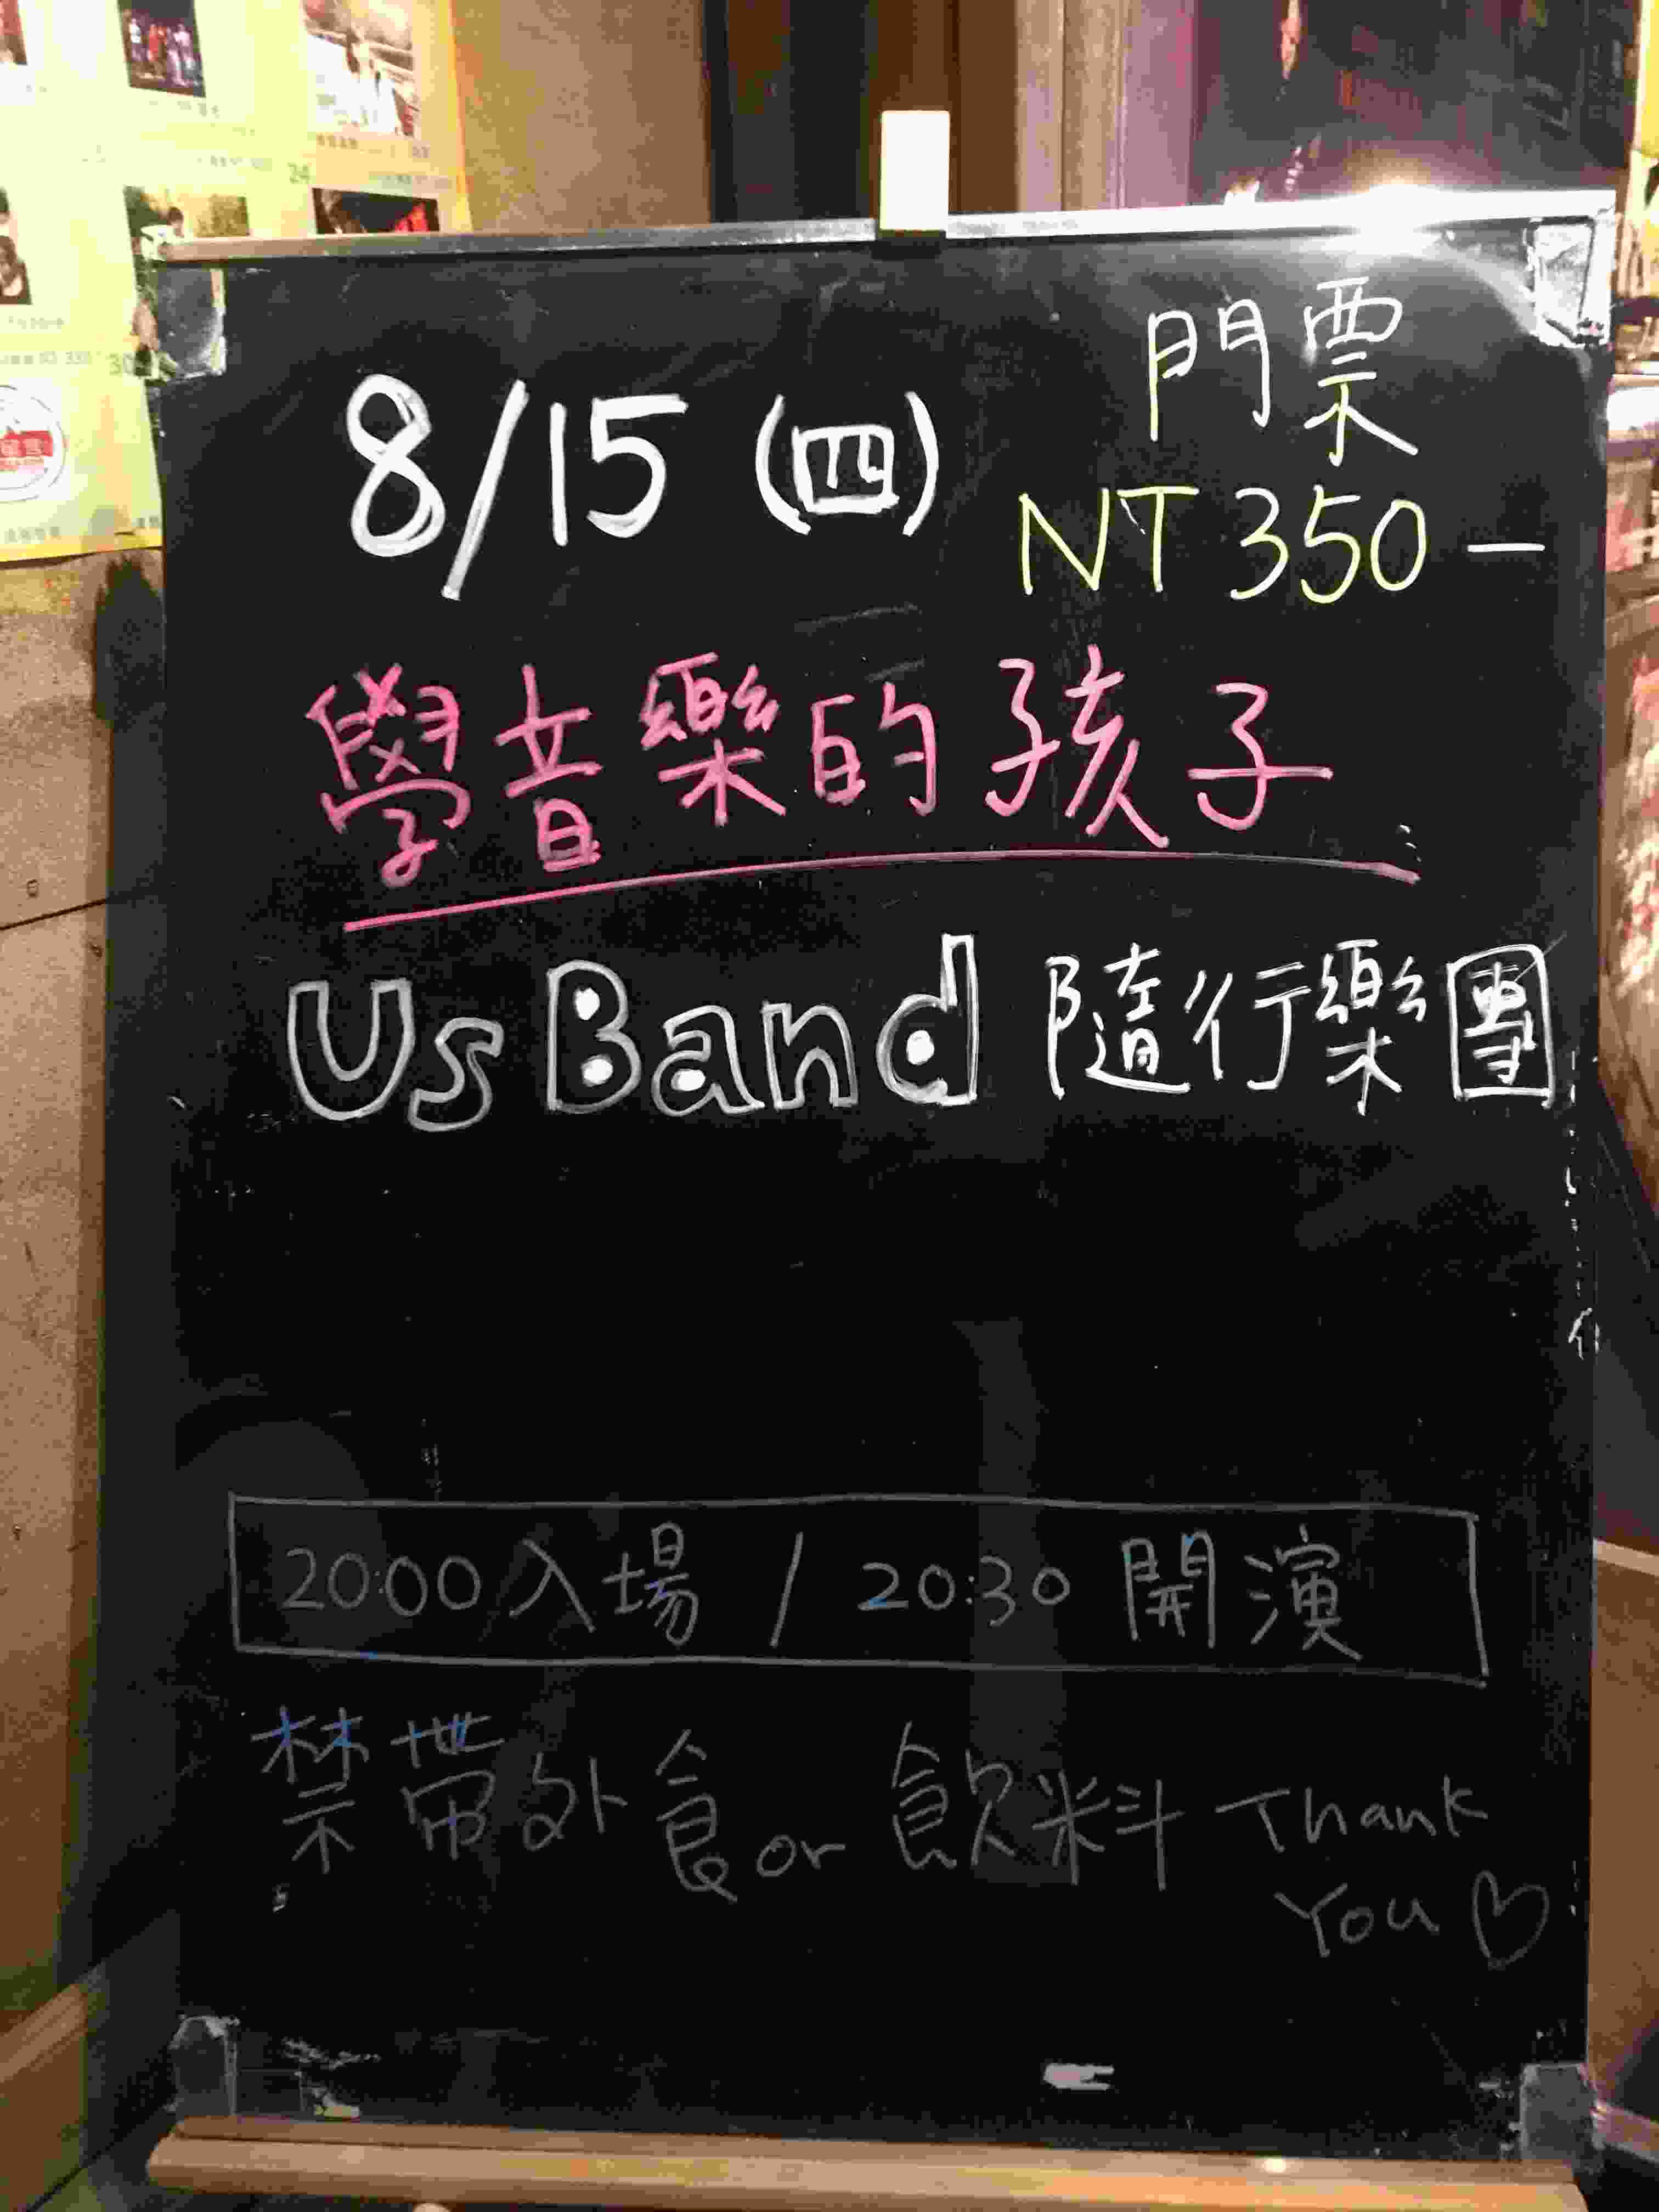 8/15 (四)
門票
NT 350 –
學音樂的孩子
Us Band 隨行樂團
20:00 入場 / 20:30 開演
禁帶外食 or 飲料 Thank
You ♡